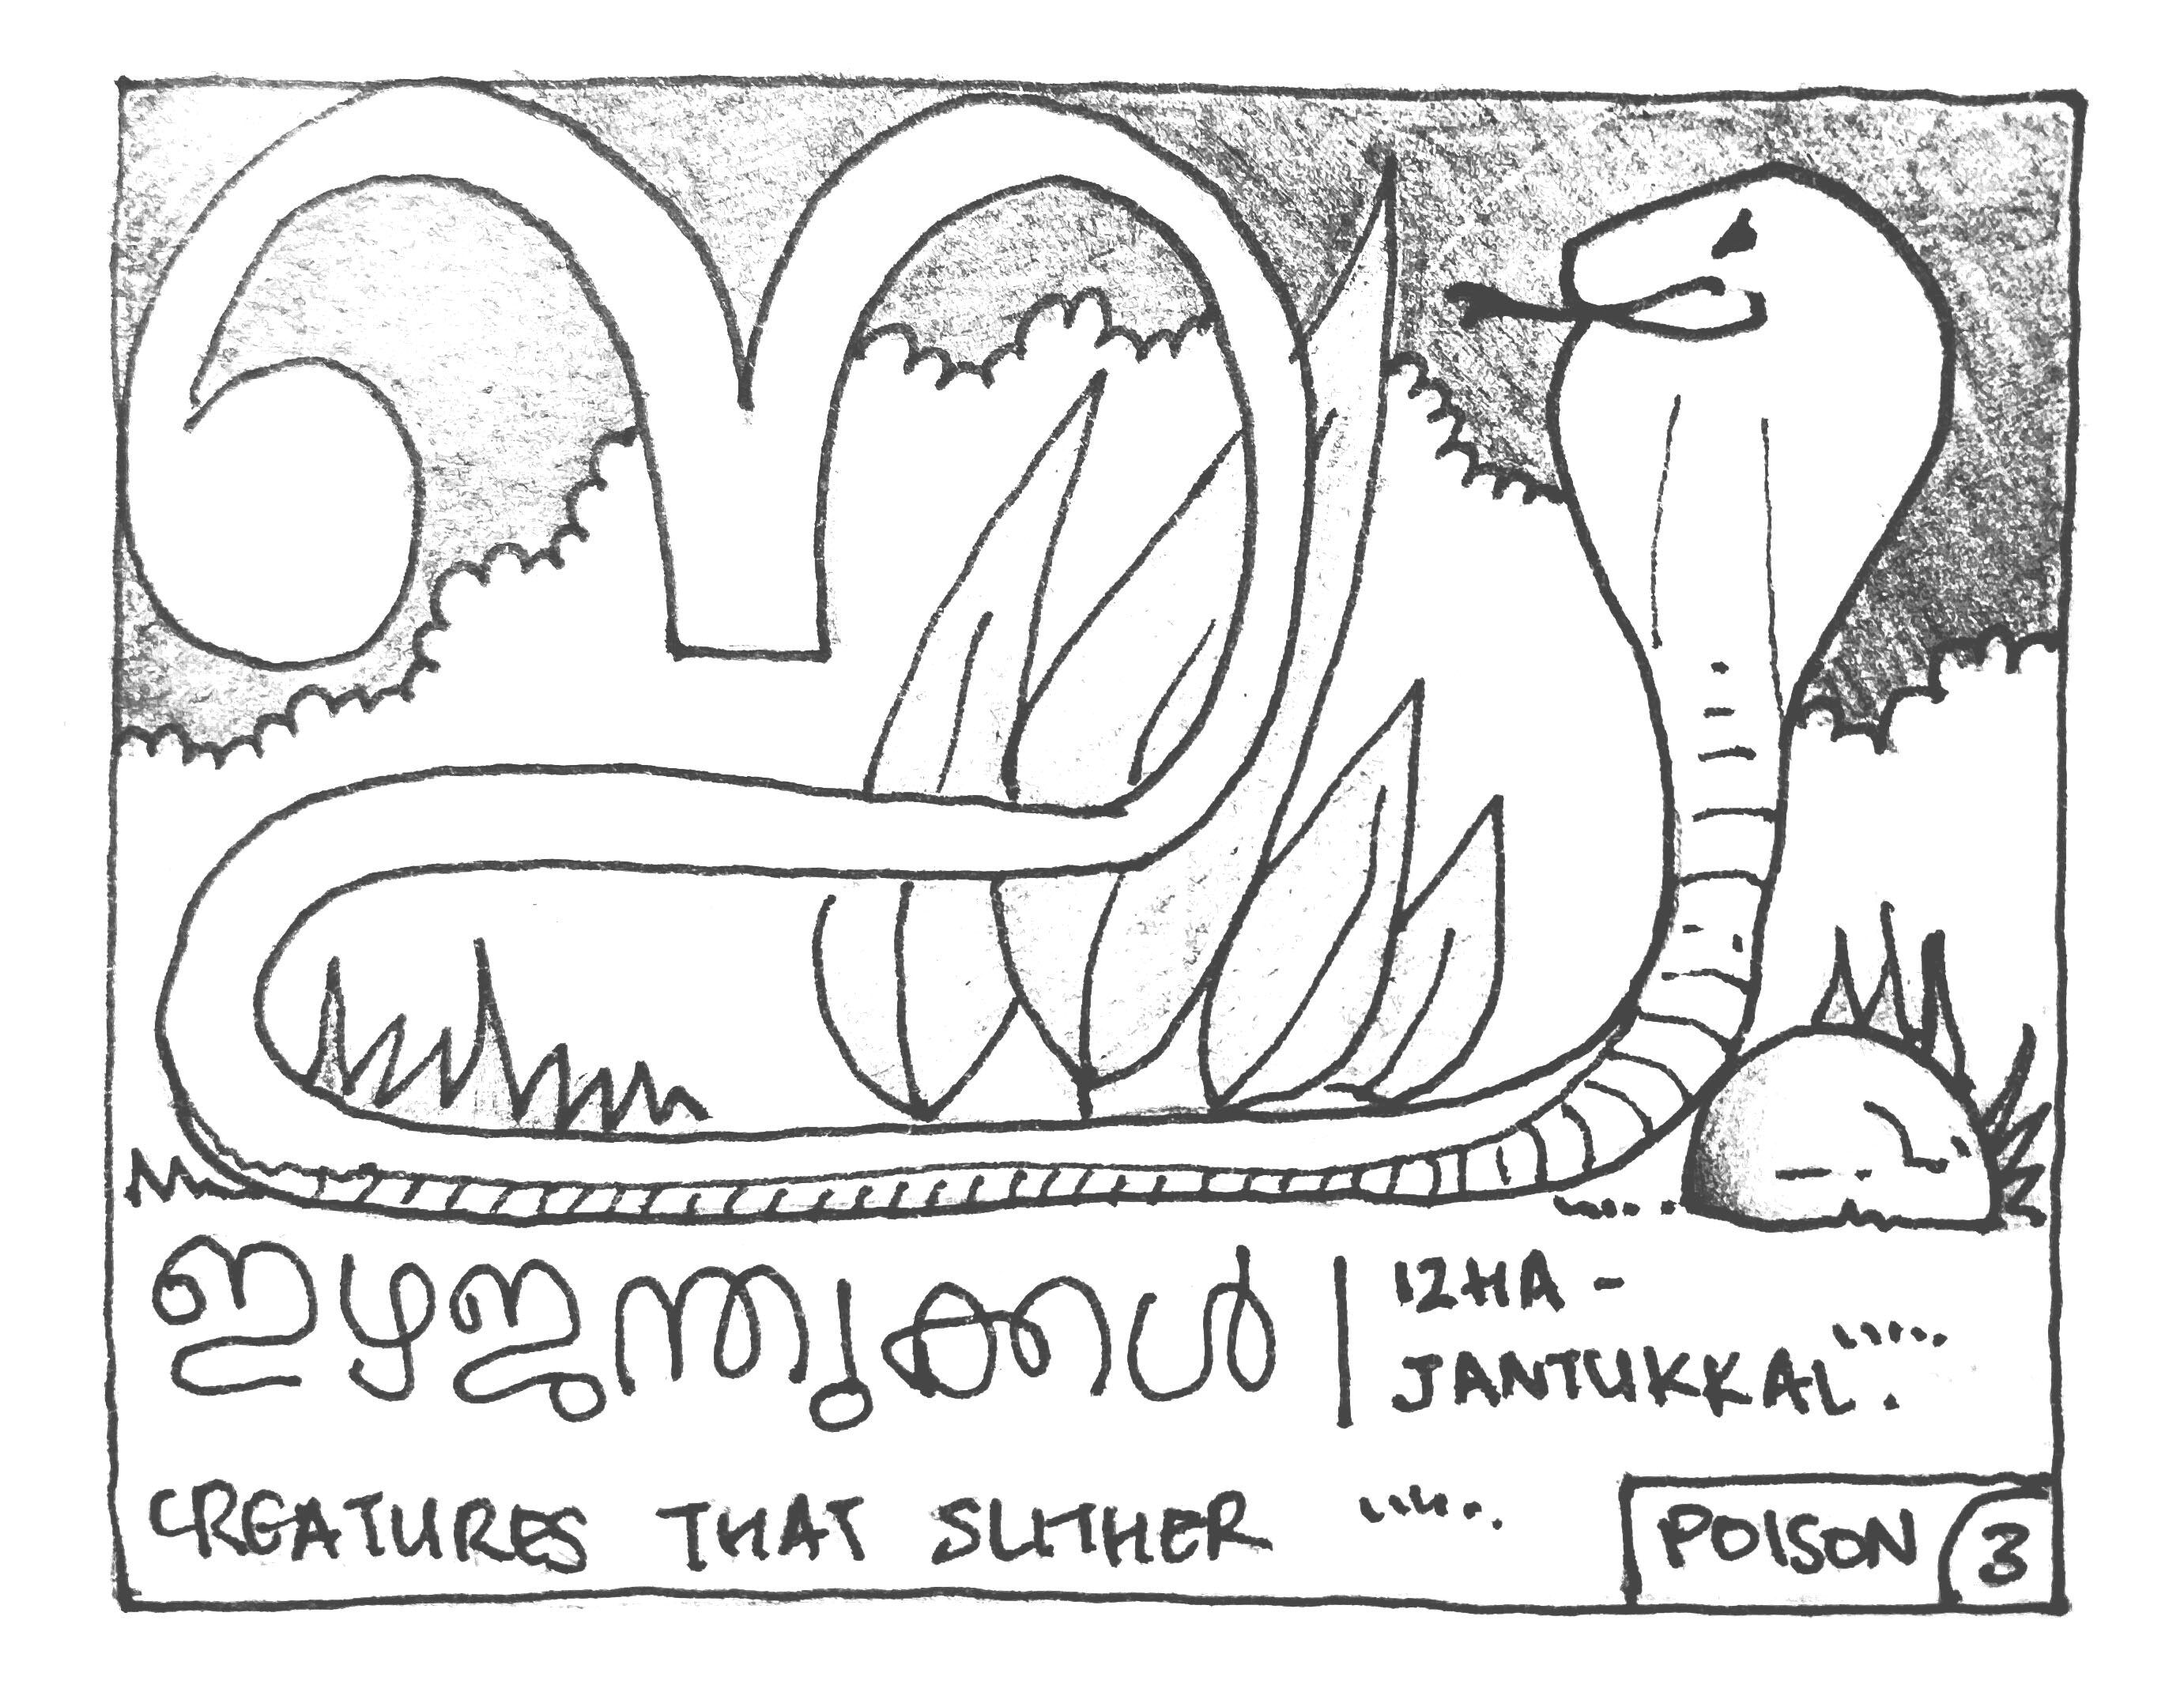 ഇ
ഇഴജന്തുക്കൾ | IZHA-
JANTUKKAL.
CREATURES THAT SLITHER
POISON 3